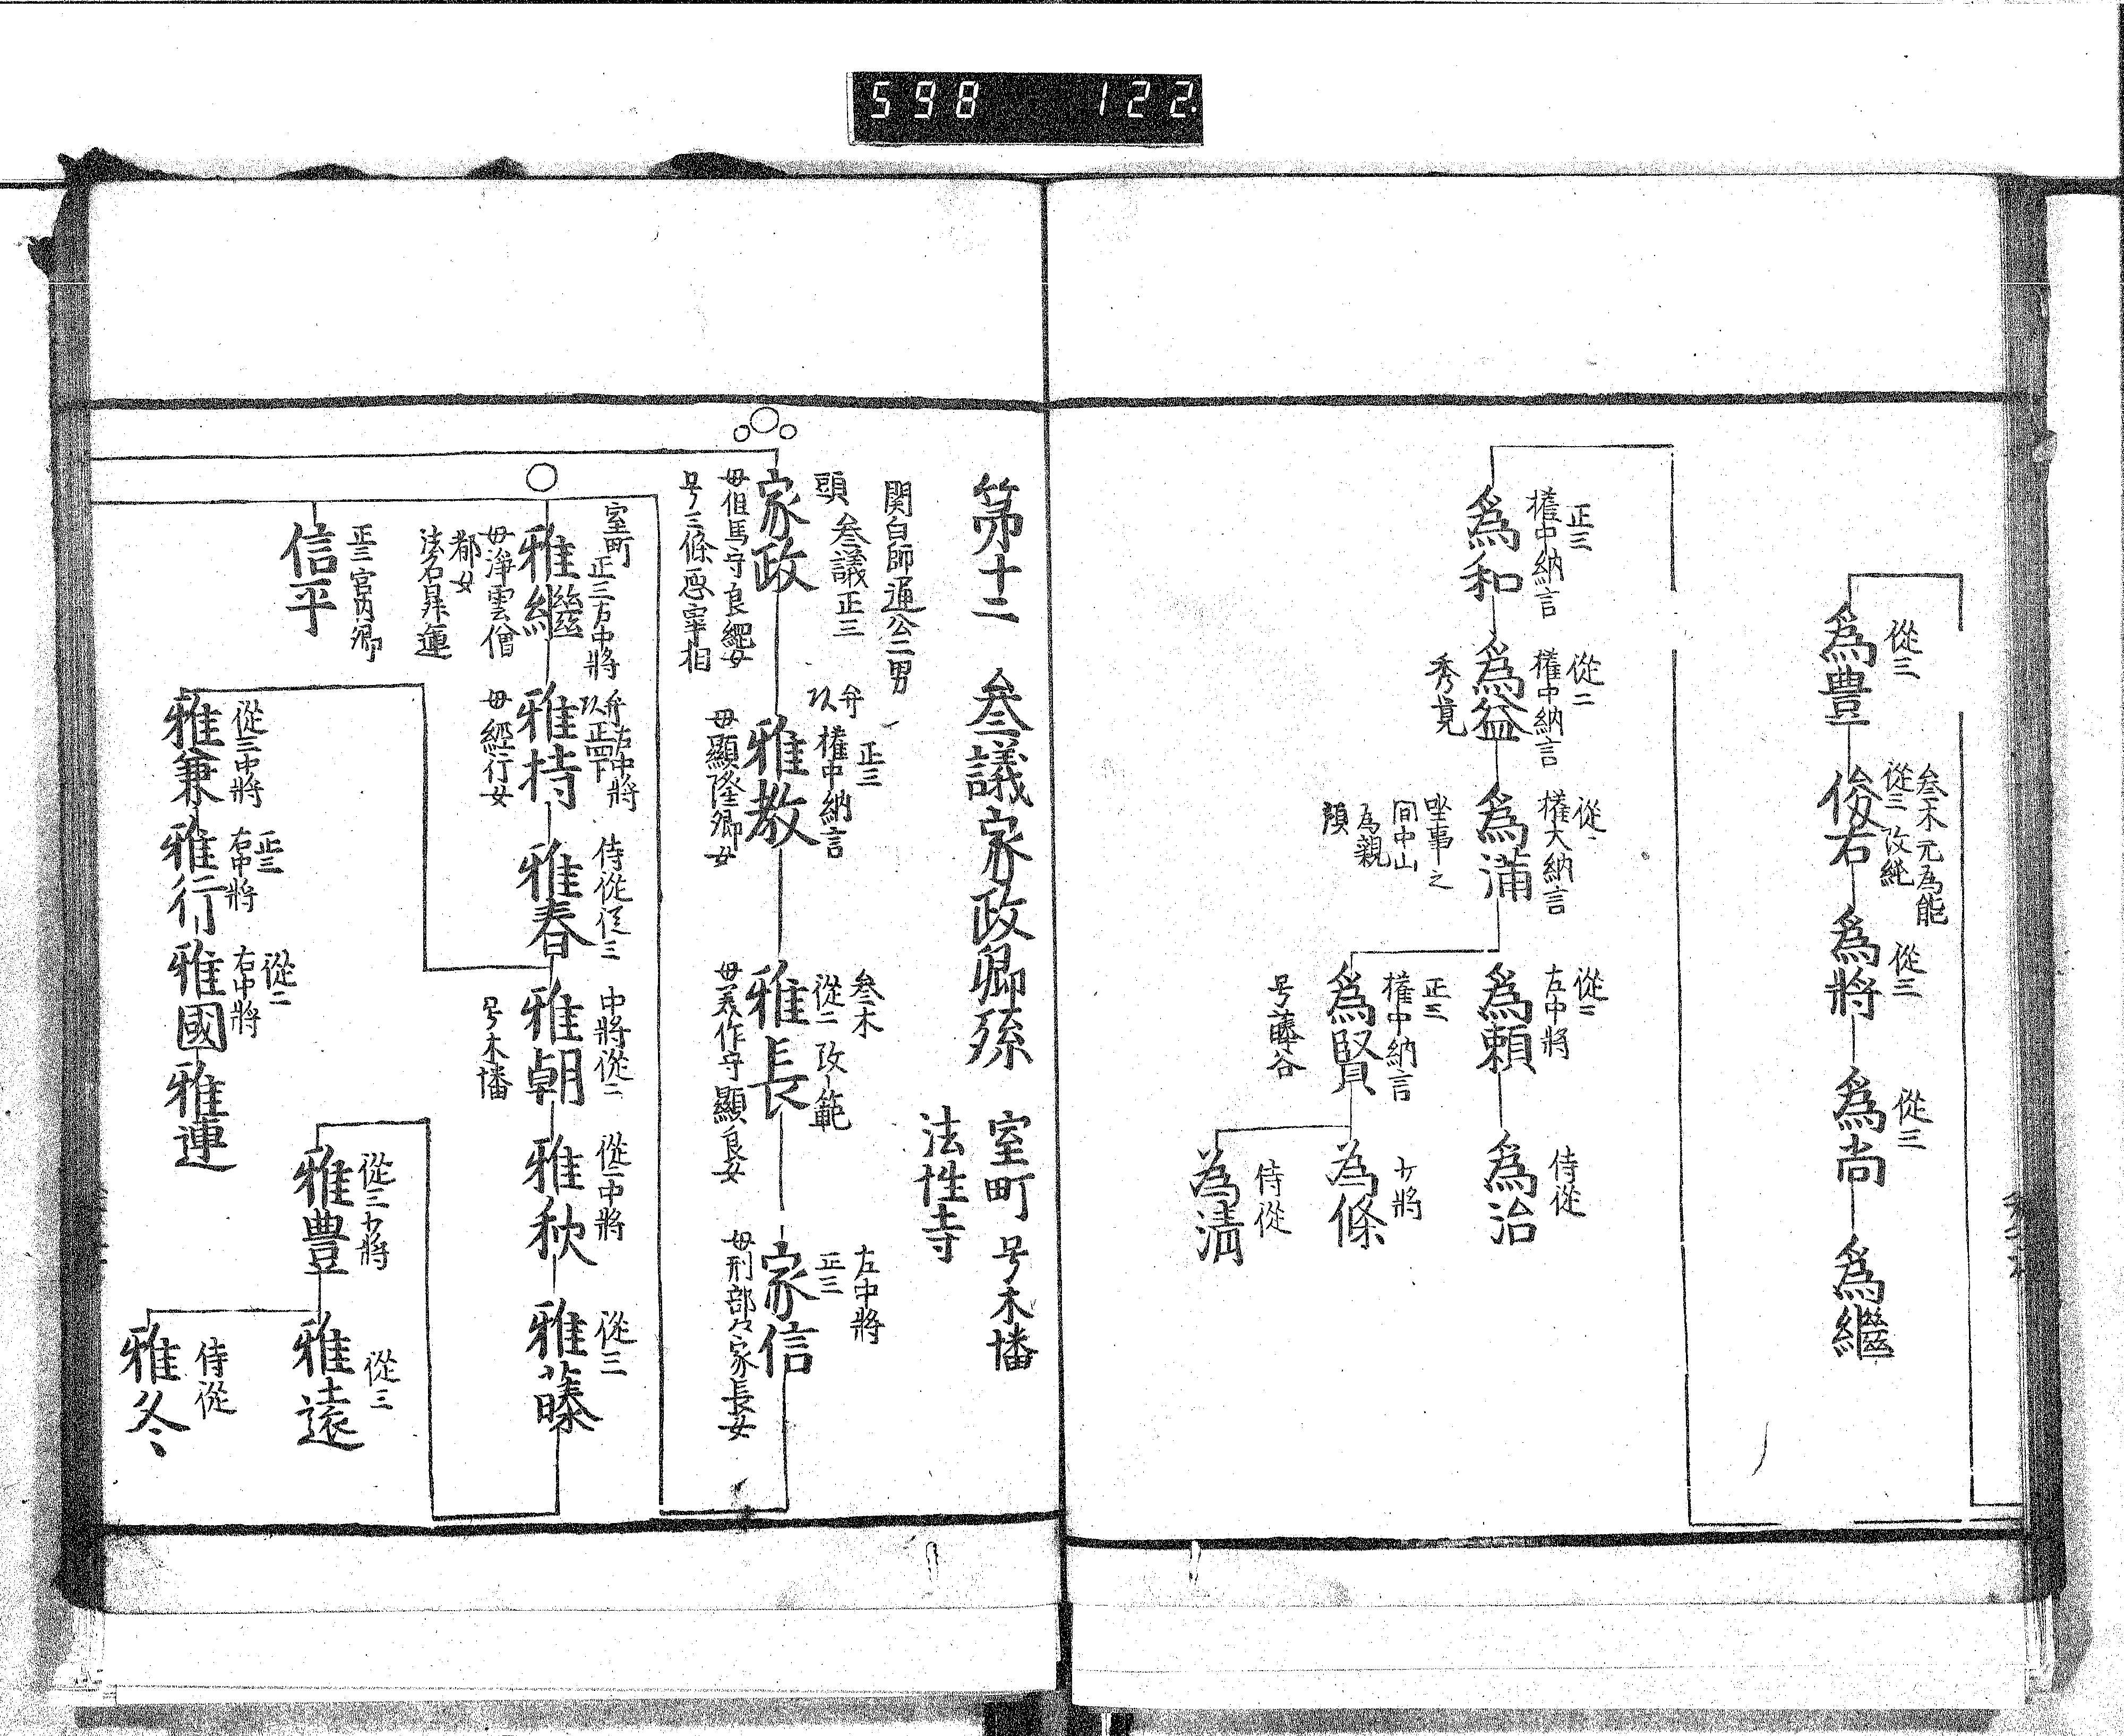 598 122
從三
爲豊
叅木元為能
從三 改純
俊右
從三
爲將
從三
爲尚
爲繼
正三
權中納言
爲和
從二
權中納言
爲益
秀覚
從一
權大納言
爲滿
坐事之
間中山
為親
預
從二
左中將
爲頼
侍從
爲治
正三
權中納言
爲賢
号藤谷
少將
為條
侍從
為清
第十二 叅議家政卿孫 室町 号木幡
法性寺
関白師通公二男
頭 叅議正三
家政
母但馬守良綱女
号三條悪宰相
弁
正三
權中納言
雅教
母顯隆卿女
叅木
從二 改範
雅長
母美作守顯良女
左中將
正三
家信
母刑部卿家長女
室町
正三右中將
雅繼
母浄雲僧
都女
法名昇蓮
弁右中將
正四下
雅持
母經行女
侍從從三
雅春
中將從二
雅朝
号木幡
從二中將
雅秋
從三
雅藤
正三宮内卿
信平
從三少將
雅豊
從三
雅遠
侍從
雅冬
從三中將
雅兼
正三
右中將
雅行
從二
右中將
雅國
雅連